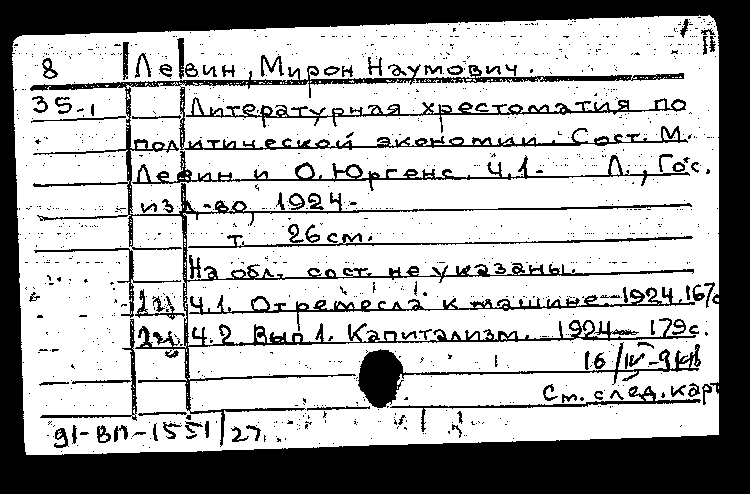 8 Левин, Мирон Наумович.
35-1 Литературная хрестоматия по
политической экономии. Сост. М.
Левин и О. Юргенс. Ч.1- Л., Гос.
изд-во, 1924-
т. 26 см.
На обл. сост. не указаны.
Ч.1. От ремесла к машине.-1924.167с
Ч.2. Вып 1. Капитализм. 1924- 179с.
16/IV-
См. след. карт
91-ВП-1551/27.